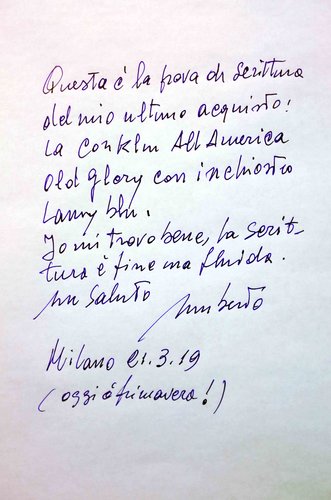 Questa è la prova di scrittura
del mio ultimo acquisto:
la Conklin All America
Old Glory con inchiostro
Lamy blu.
Io mi trovo bene, la scrit-
tura è fine ma fluida.
un saluto Umberto
Milano 21.3.19
(oggi è primavera!)